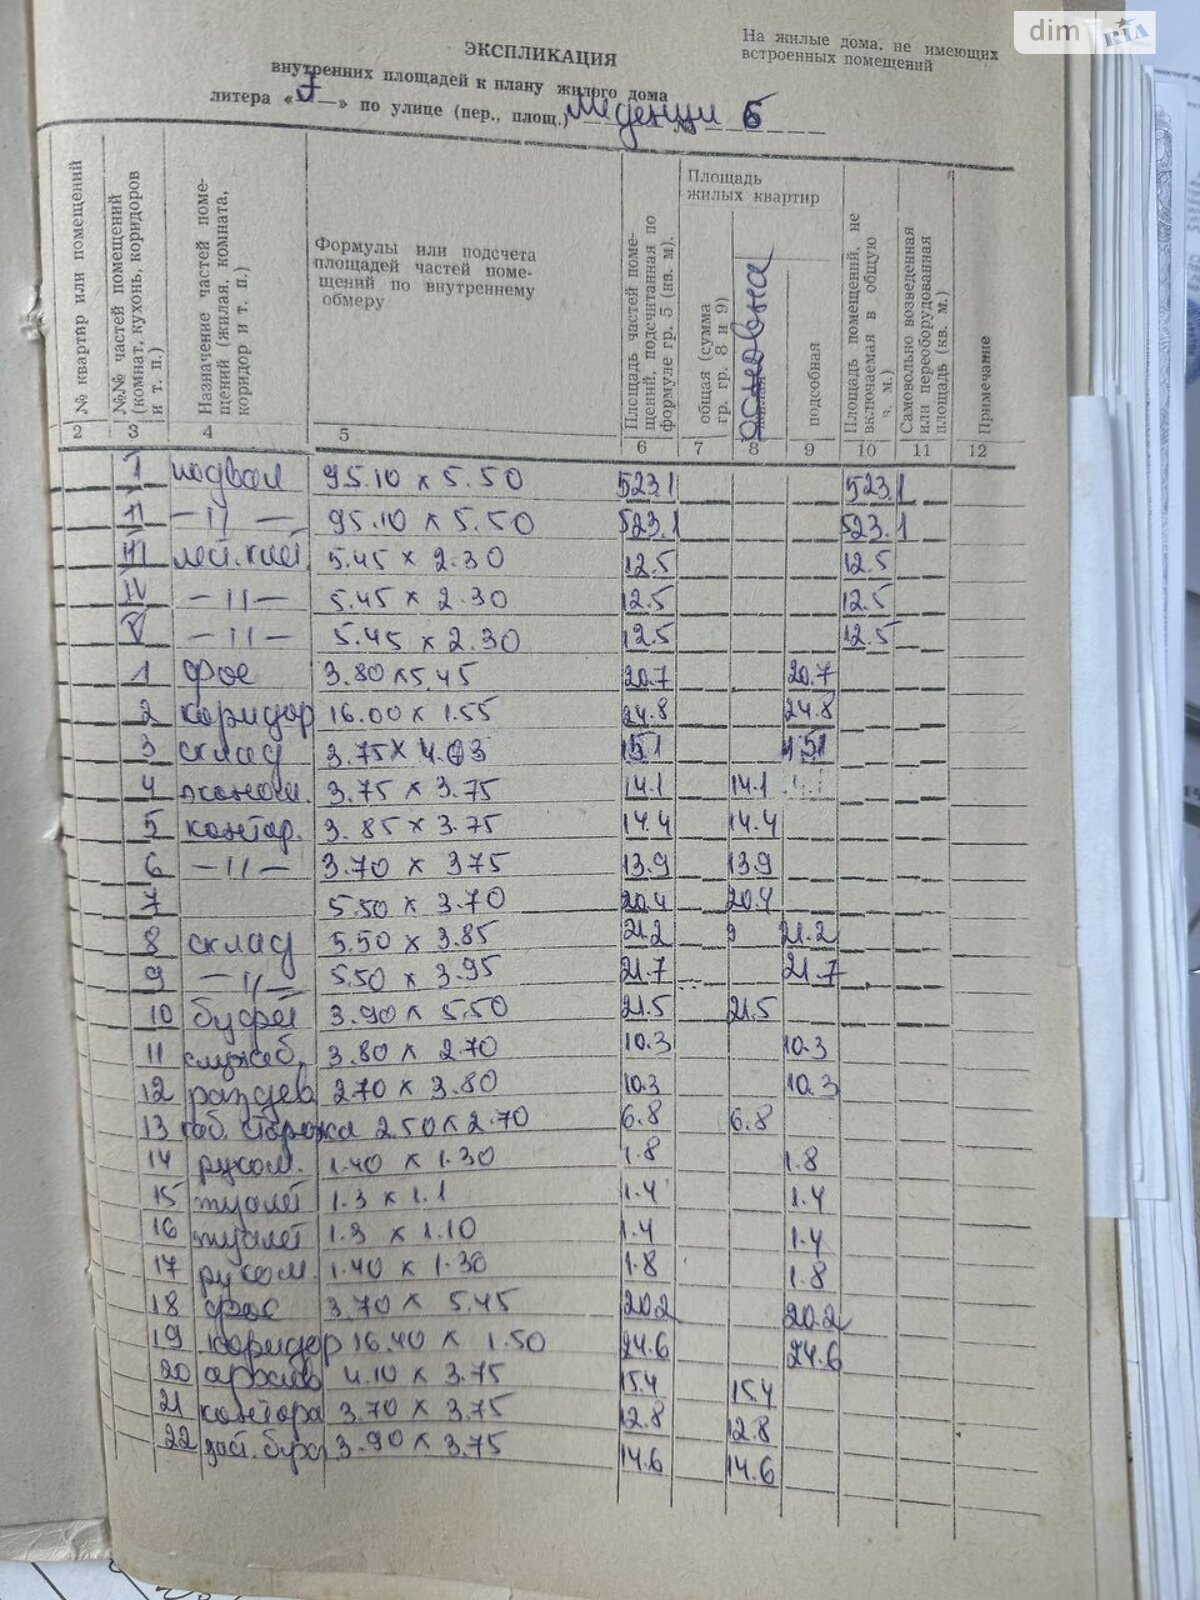 dim RIA
На жилые дома, не имеющих
встроенных помещений
ЭКСПЛИКАЦИЯ
внутренних площадей к плану жилого дома
литера « » по улице (пер., площ.) № 6
№ квартир или помещений
№№ частей помещений
(комнат, кухонь, коридоров
и т. п.)
Назначение частей поме-
щений (жилая, комната,
коридор и т. п.)
Формулы или подсчета
площадей частей поме-
щений по внутреннему
обмеру
Площадь частей поме-
щений, подсчитанная по
формуле гр. 5 (кв. м).
Площадь
жилых квартир
общая (сумма
гр. гр. 8 и 9)
основна
подсобная
Площадь помещений, не
включаемая в общую
м.)
Самовольно возведенная
или переоборудованная
площадь (кв. м.)
Примечание
2 3 4 5 6 7 8 9 10 11 12
I подвал 95.10 x 5.50 523.1 523.1
II —〃— 95.10 x 5.50 523.1 523.1
III 5.45 x 2.30 12.5 12.5
IV —〃— 5.45 x 2.30 12.5 12.5
V —〃— 5.45 x 2.30 12.5 12.5
1 фое 3.80 x 5.45 20.7 20.7
2 коридор 16.00 x 1.55 24.8 24.8
3 склад 3.75 x 4.03 15.1 15.1
4 эконом. 3.75 x 3.75 14.1 14.1
5 контор. 3.85 x 3.75 14.4 14.4
6 —〃— 3.70 x 375 13.9 13.9
7 5.50 x 3.70 20.4 20.4
8 склад 5.50 x 3.85 21.2 21.2
9 —〃— 5.50 x 3.95 21.7 21.7
10 буфет 3.90 x 5.50 21.5 21.5
11 служеб. 3.80 x 2.70 10.3 10.3
12 раздев 2.70 x 3.80 10.3 10.3
13 каб. сторожа 2.50 x 2.70 6.8 6.8
14 руком. 1.40 x 1.30 1.8 1.8
15 туалет 1.3 x 1.1 1.4 1.4
16 туалет 1.3 x 1.10 1.4 1.4
17 руком. 1.40 x 1.30 1.8 1.8
18 фое 3.70 x 5.45 20.2 20.2
19 коридор 16.40 x 1.50 24.6 24.6
20 архив 4.10 x 3.75 15.4 15.4
21 контора 3.70 x 3.75 12.8 12.8
22 3.90 x 3.75 14.6 14.6